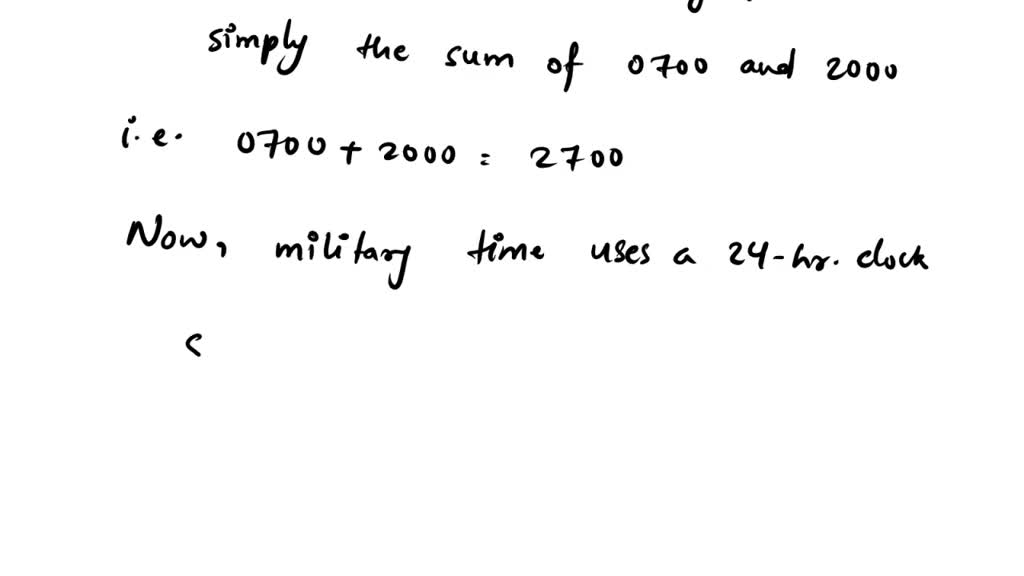 simply the sum of 0700 and 2000
i.e. 0700 + 2000 = 2700
Now, military time uses a 24-hr. clock
S